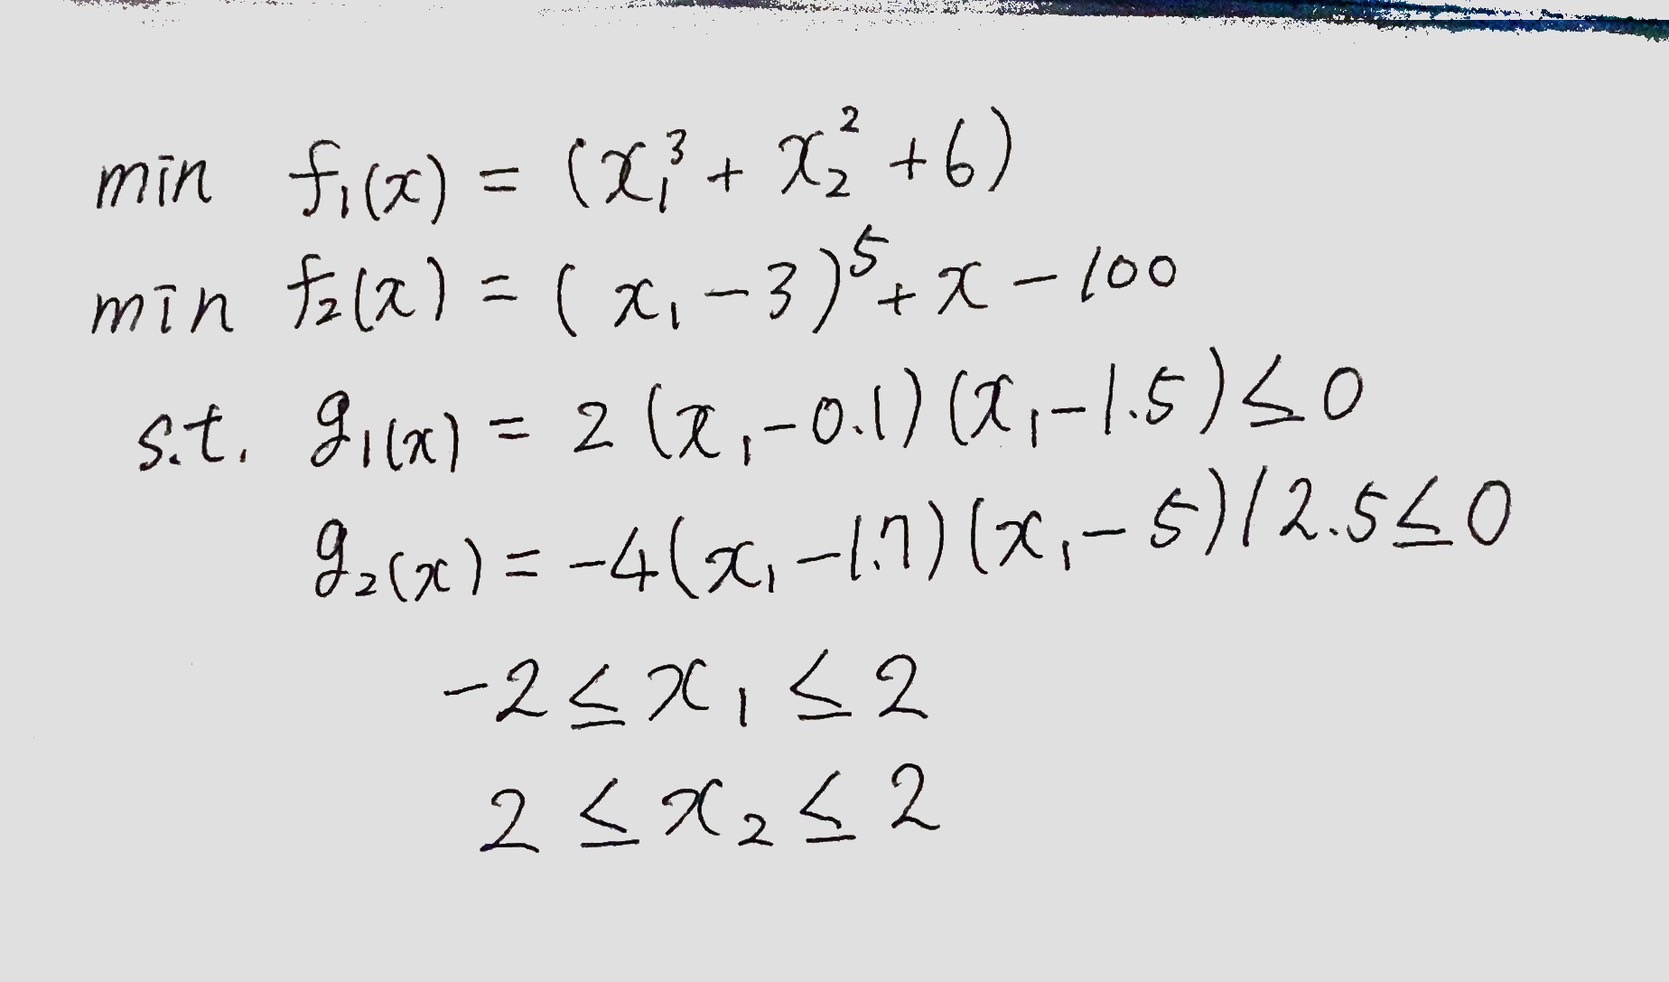 min f₁(x) = (x₁³ + x₂² + 6)
min f₂(x) = (x₁ - 3)⁵ + x - 100
s.t. g₁(x) = 2(x₁ - 0.1)(x₁ - 1.5) ≤ 0
g₂(x) = -4(x₁ - 1.7)(x₁ - 5) / 2.5 ≤ 0
-2 ≤ x₁ ≤ 2
2 ≤ x₂ ≤ 2